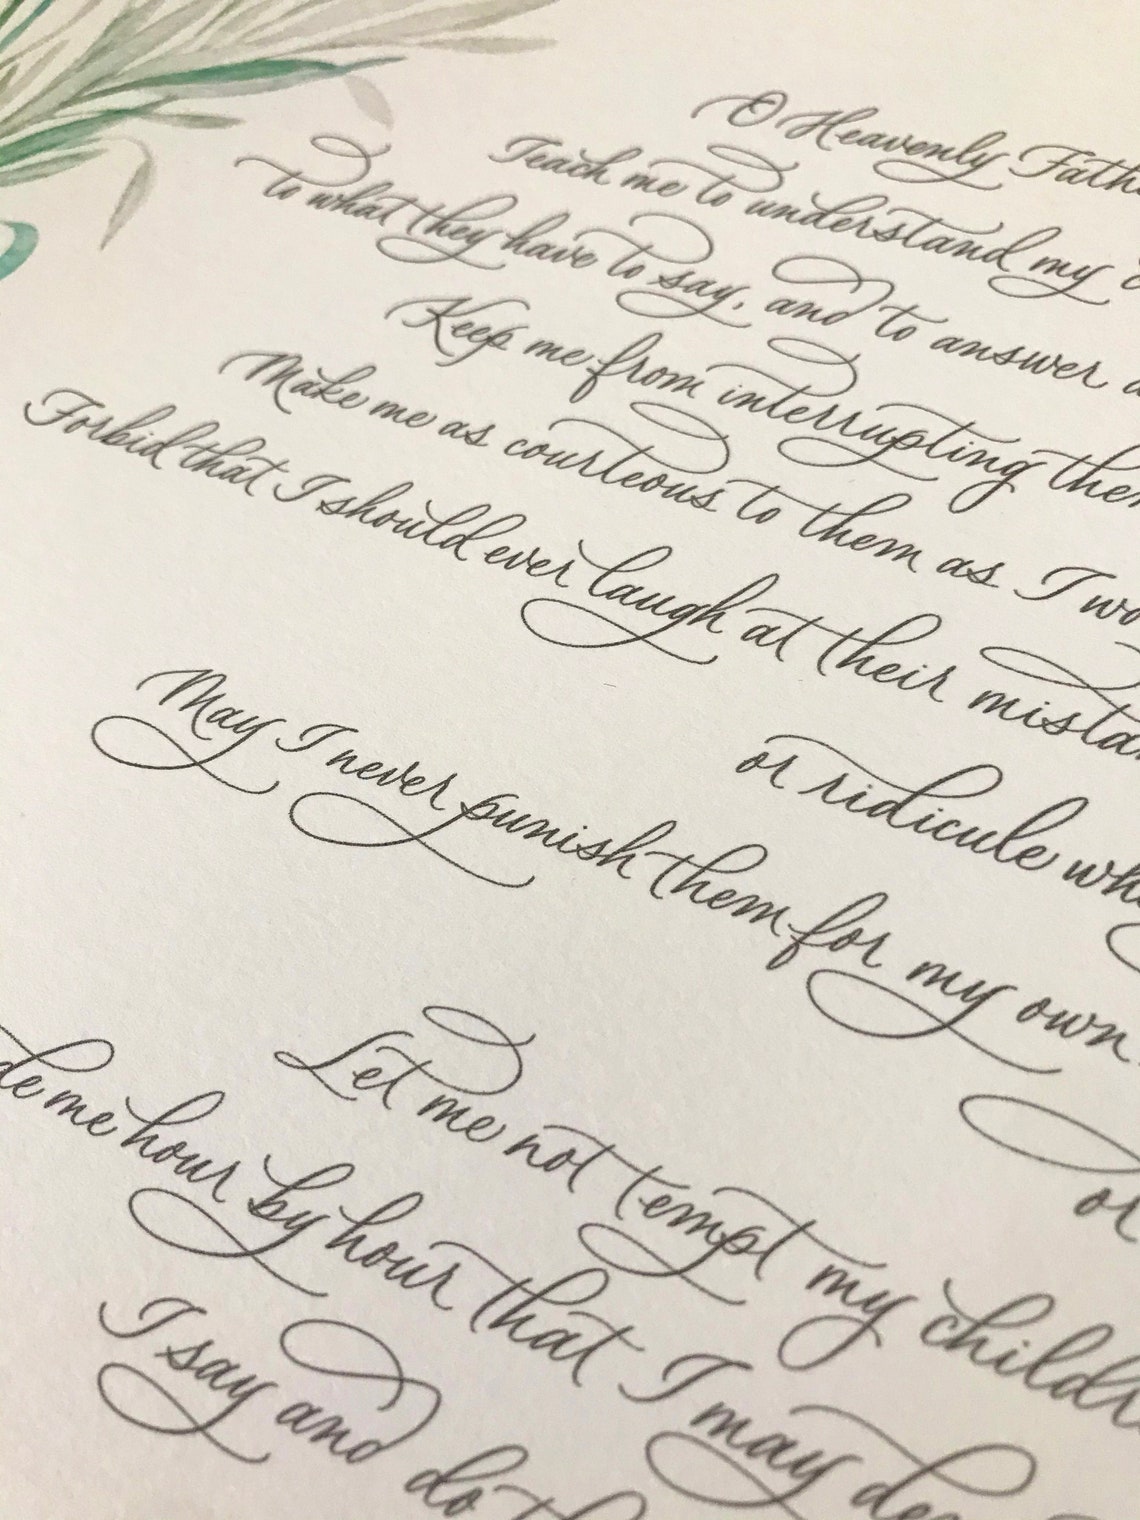 O Heavenly
Teach me to understand my
to what they have to say, and to answer
Keep me from interrupting
Make me as courteous to them as I
Forbid that I should ever laugh at their
or ridicule
May I never punish them for my own
or
Let me not tempt my
me hour by hour that I may
I say and do